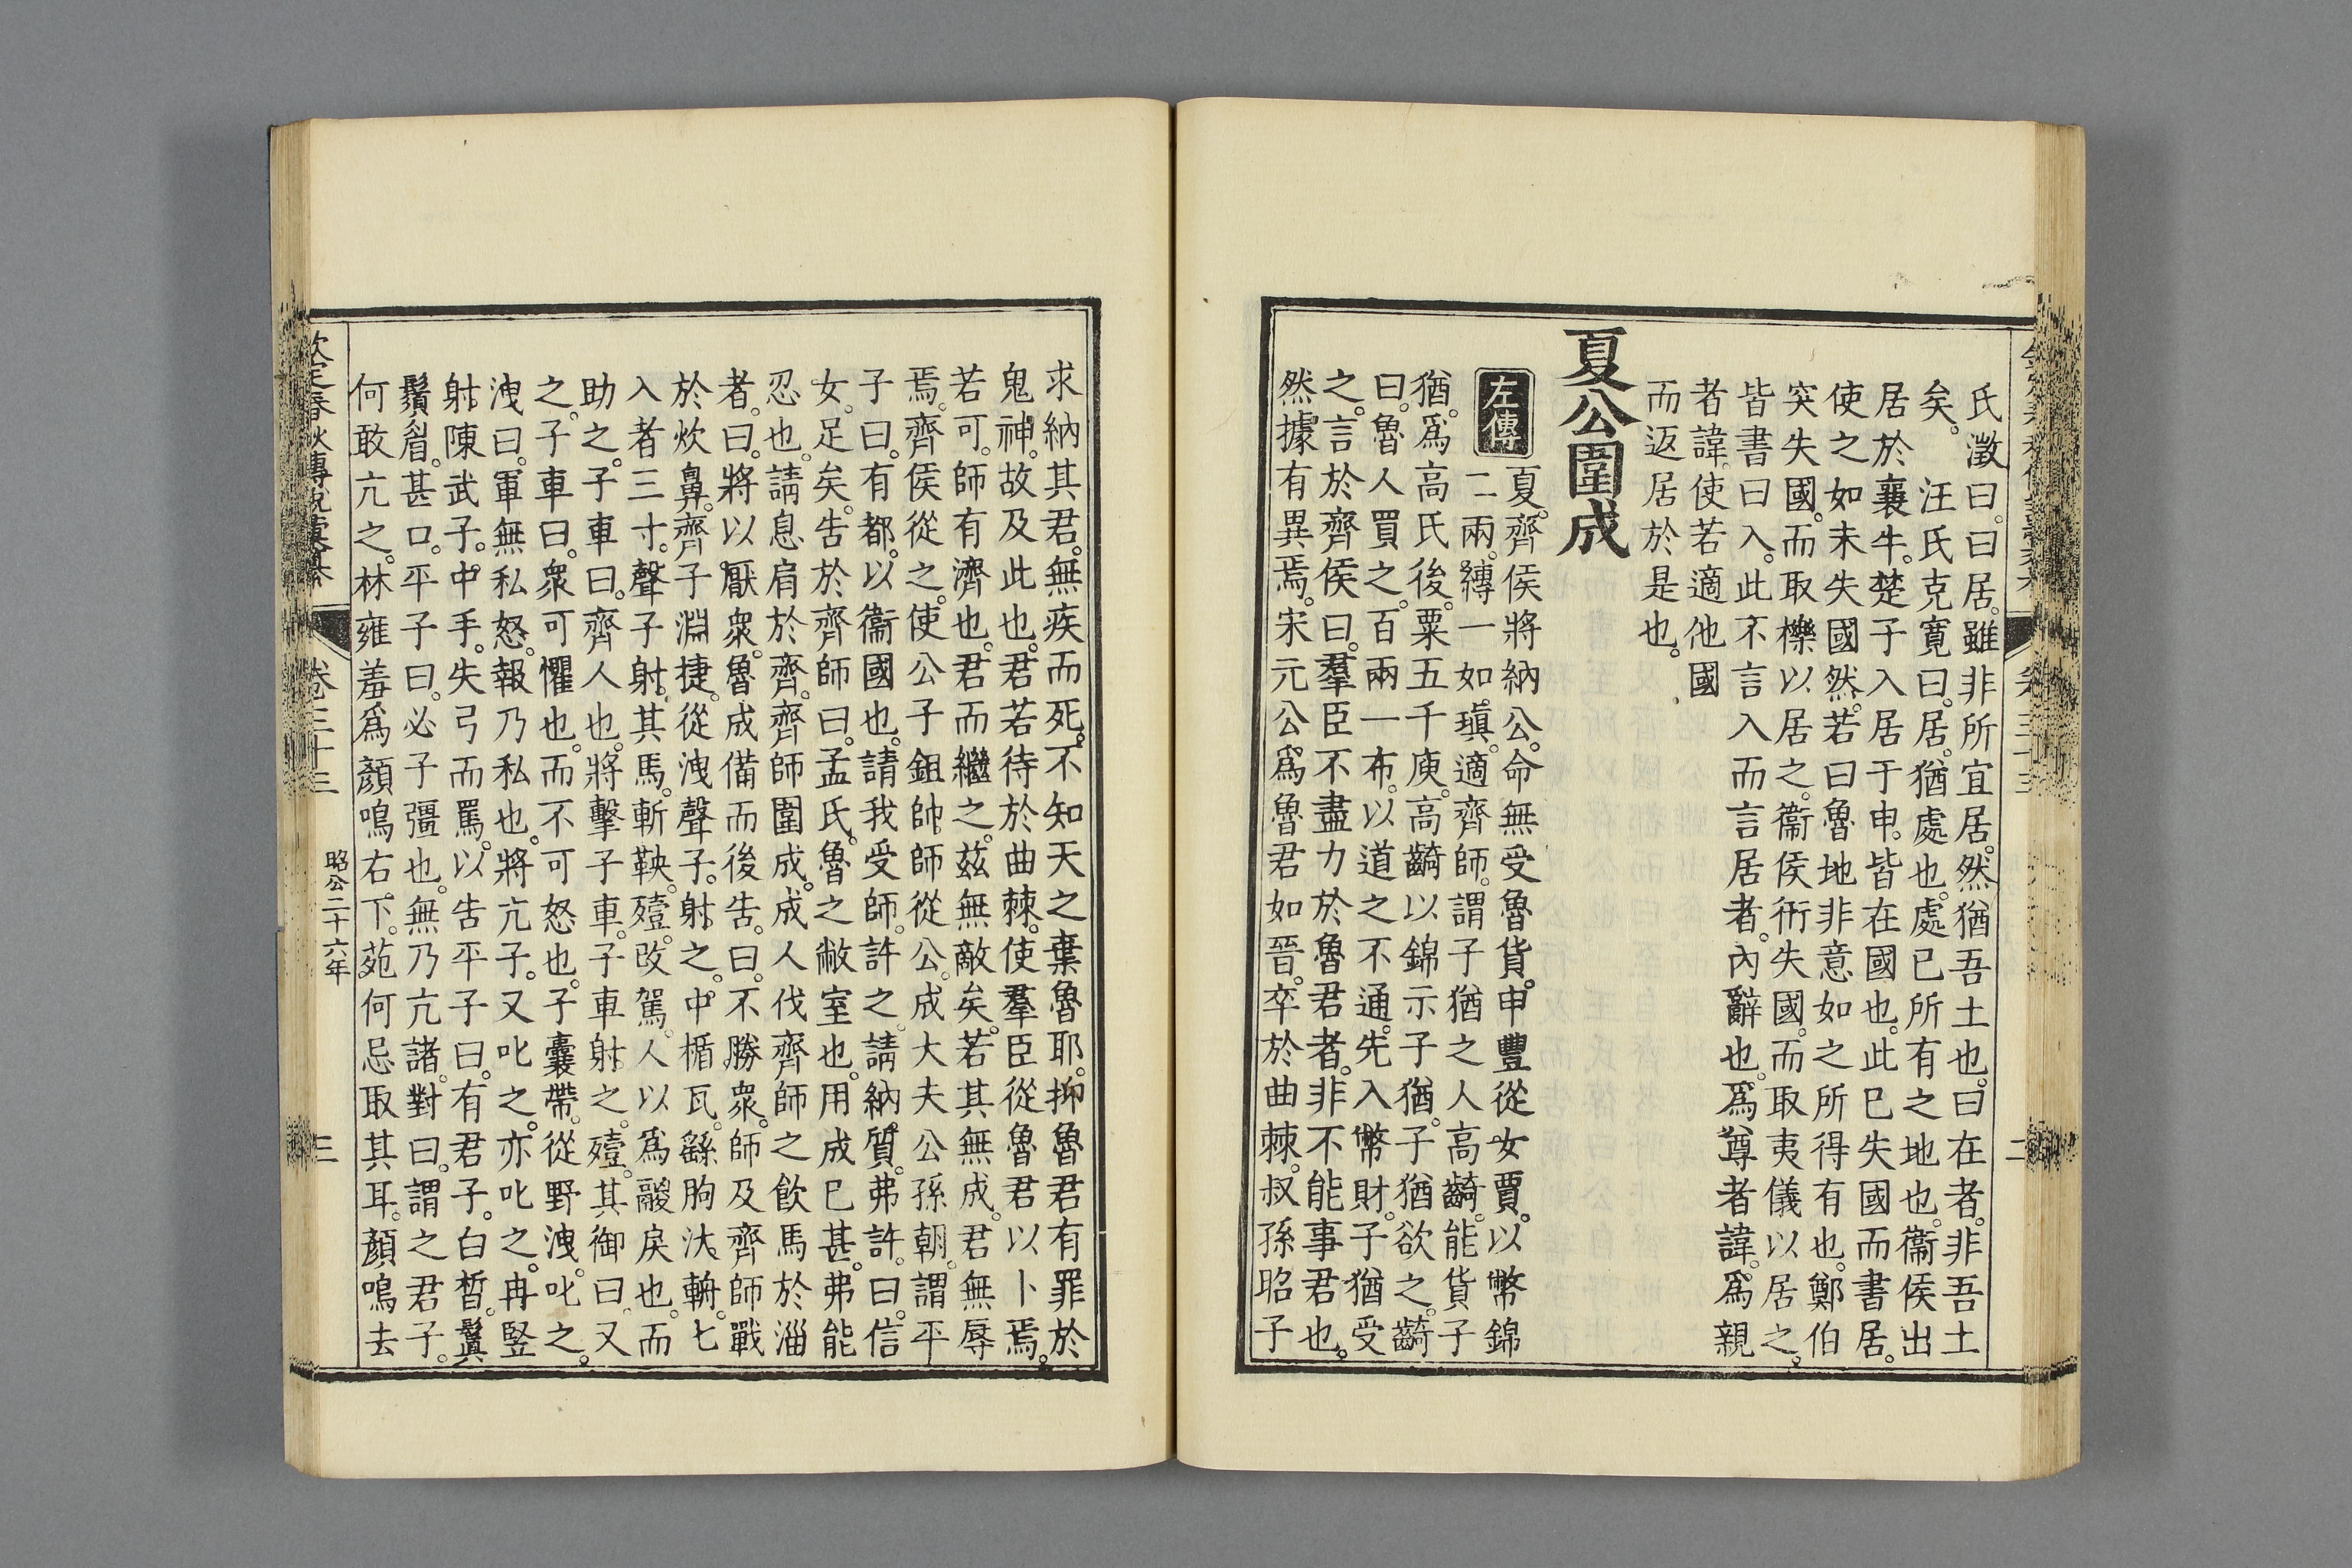 氏澂曰。曰居。雖非所宜居。然猶吾土也。曰在者。非吾土
矣。　汪氏克寬曰。居。猶處也。處已所有之地也。衞侯出
居於襄牛。楚子入居于申。皆在國也。此已失國而書居。
使之如未失國然。若曰魯地非意如之所得有也。鄭伯
突失國。而取櫟以居之。衞侯衎失國。而取夷儀以居之。
皆書曰入。此不言入而言居者。內辭也。爲尊者諱。爲親
者諱。使若適他國
而返居於是也。
夏公圍成
左傳
夏。齊侯將納公。命無受魯貨。申豐從女賈。以幣錦
二兩。縛一如瑱。適齊師。謂子猶之人高齮。能貨子
猶。爲高氏後。粟五千庾。高齮以錦示子猶。子猶欲之。齮
曰。魯人買之。百兩一布。以道之不通。先入幣財。子猶受
之。言於齊侯曰。羣臣不盡力於魯君者。非不能事君也。
然據有異焉。宋元公爲魯君如晉。卒於曲棘。叔孫昭子
求納其君。無疾而死。不知天之棄魯耶。抑魯君有罪於
鬼神。故及此也。君若待於曲棘。使羣臣從魯君以卜焉。
若可。師有濟也。君而繼之。茲無敵矣。若其無成。君無辱
焉。齊侯從之。使公子鉏帥師從公。成大夫公孫朝。謂平
子曰。有都。以衞國也。請我受師。許之。請納質。弗許。曰。信
女。足矣。吿於齊師曰。孟氏。魯之敝室也。用成已甚。弗能
忍也。請息肩於齊。齊師圍成。成人伐齊師之飮馬於淄
者。曰。將以厭衆。魯成備而後吿。曰。不勝衆。師及齊師戰
於炊鼻。齊子淵捷。從洩聲子。射之。中楯瓦。繇朐汰輈。匕
入者三寸。聲子射。其馬。斬鞅。殪。改駕。人以爲鬷戾也。而
助之。子車曰。齊人也。將擊子車。子車射之。殪。其御曰。又
之。子車曰。衆可懼也。而不可怒也。子囊帶。從野洩。叱之。
洩曰。軍無私怒。報乃私也。將亢子。又叱之。亦叱之。冉竪
射。陳武子。中手。失弓而罵。以吿平子曰。有君子。白晳。鬒
鬚眉。甚口。平子曰。必子彊也。無乃亢諸。對曰。謂之君子。
何敢亢之。林雍羞爲顏鳴右。下。苑何忌取其耳。顏鳴去
欽定春秋傳說彙纂　卷三十三　昭公二十六年　三